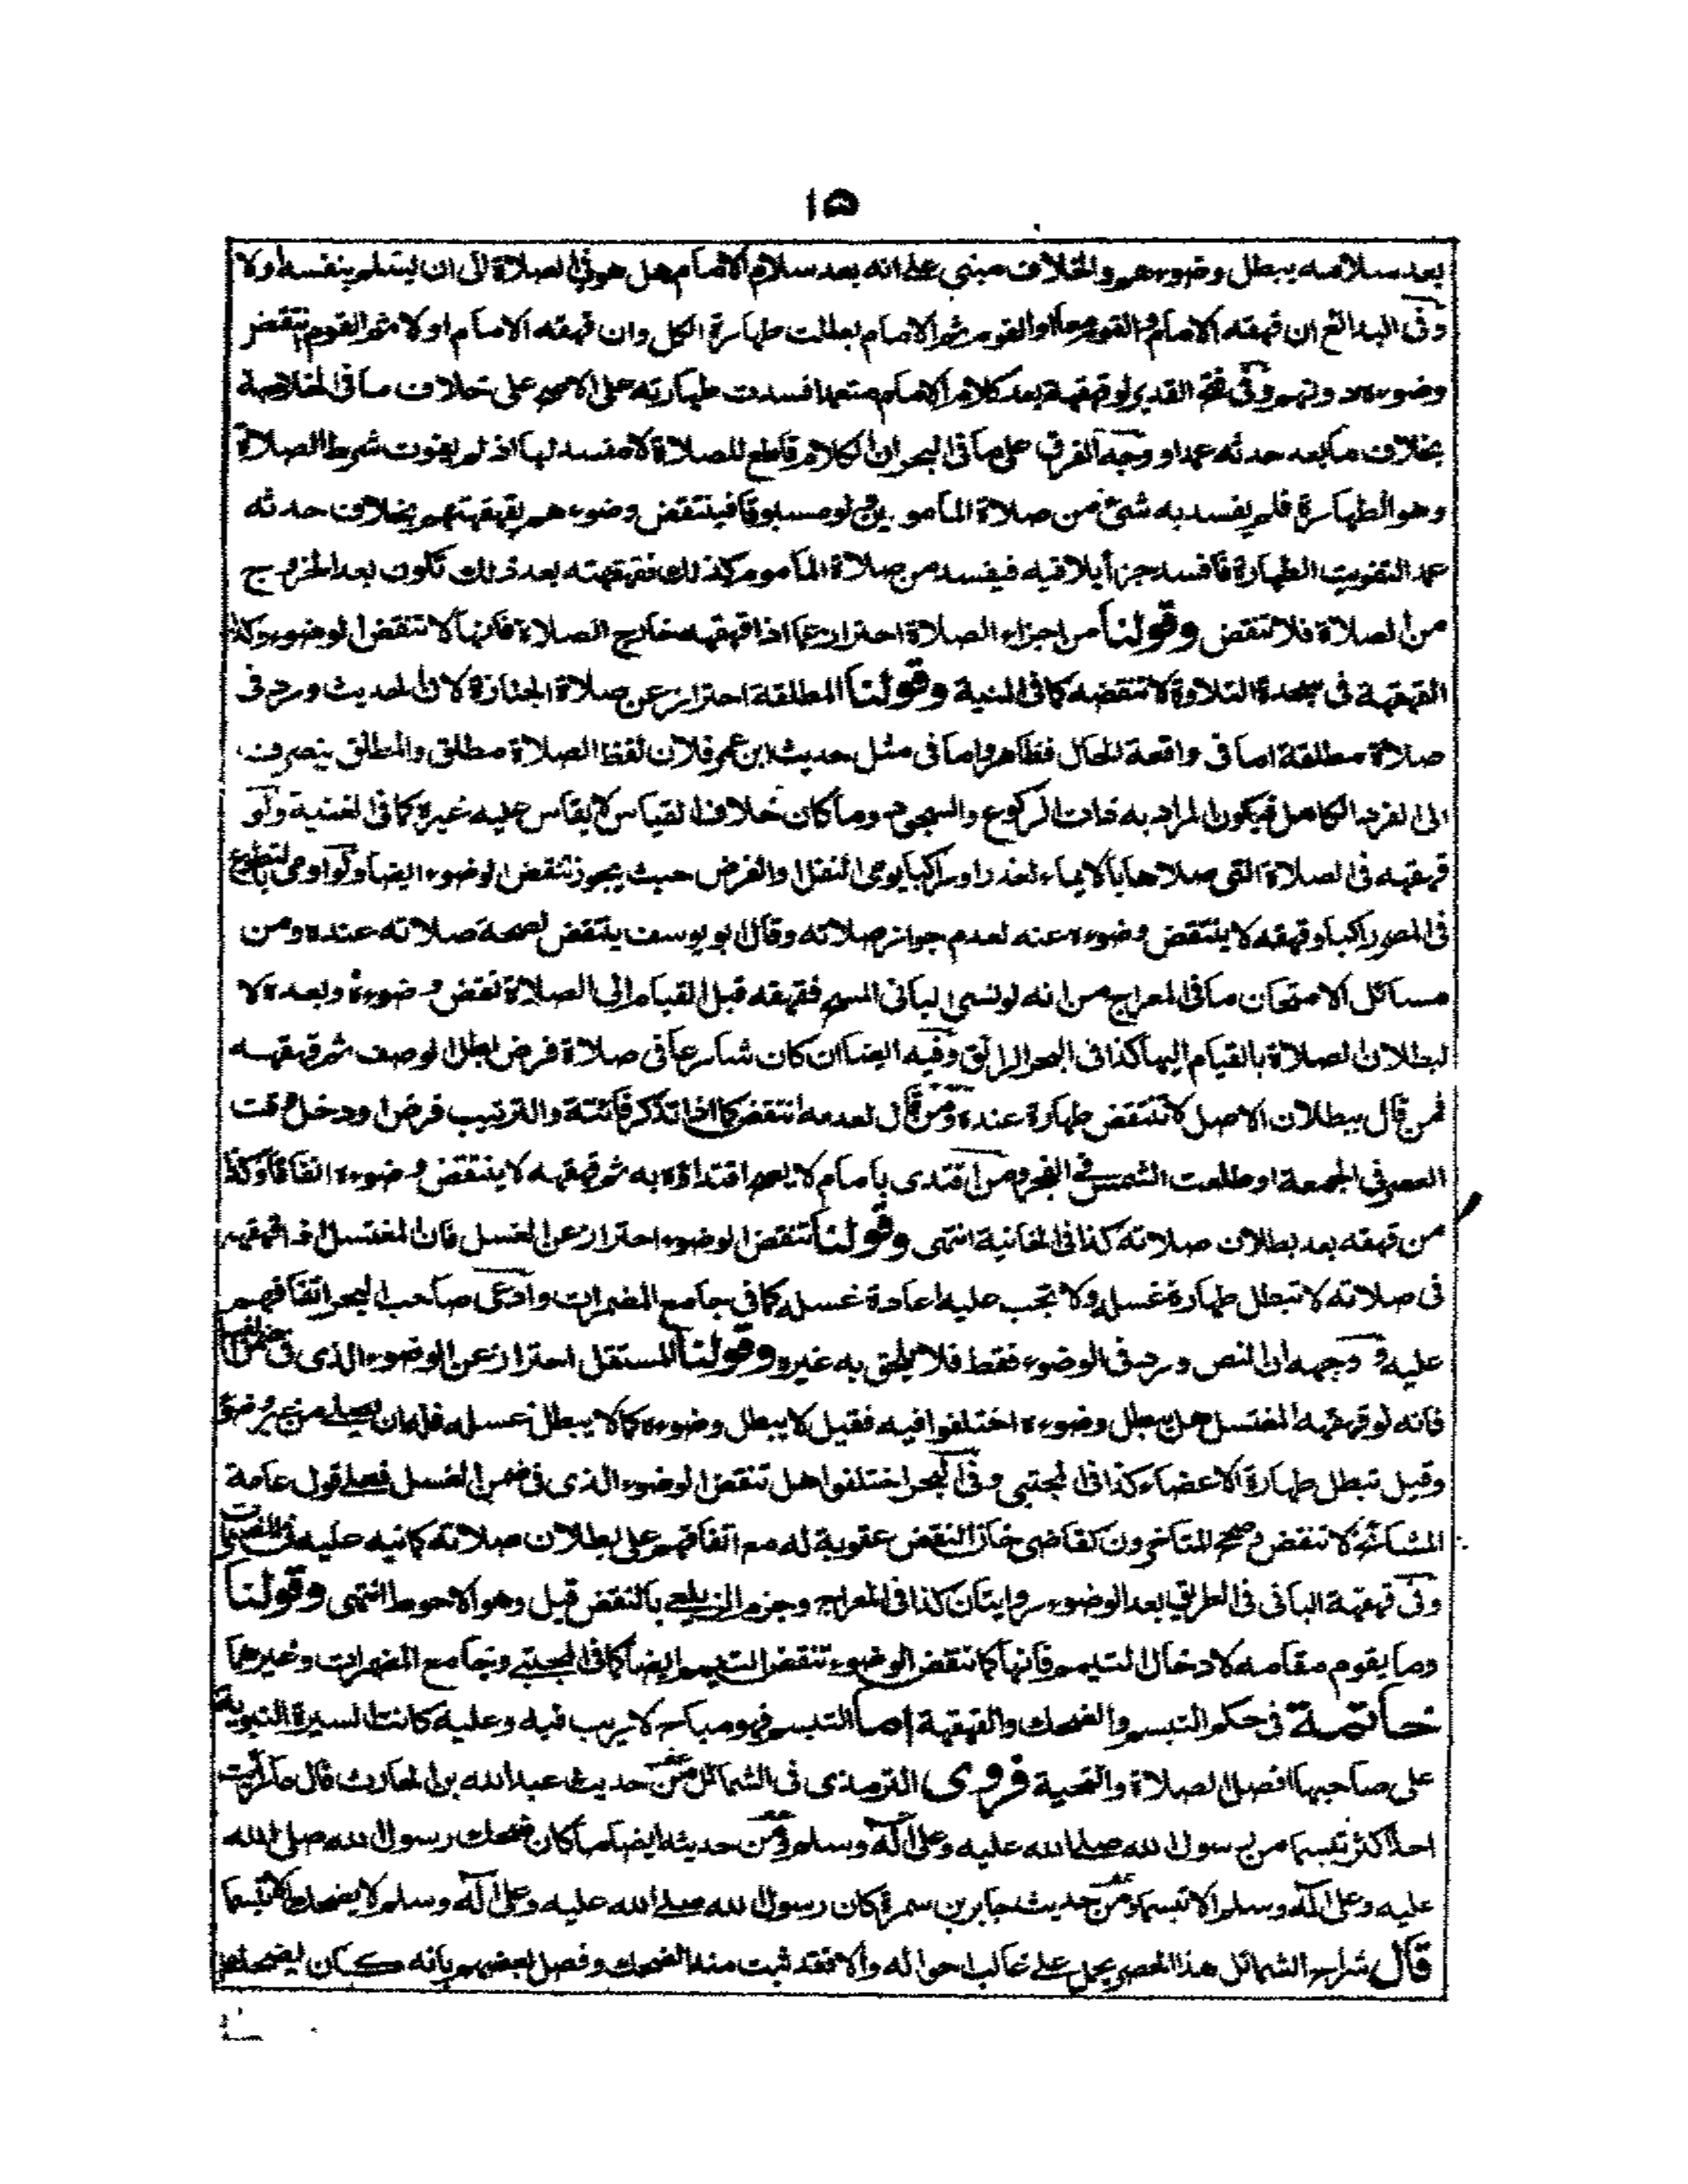 ١۵
بعد سلامه يبطل وضوءهم والخلاف مبنى على انه بعد سلام الامام هل هو فى الصلاة الى ان يسلم بنفسه اولا
وفى البدائع ان قهقه الامام والقوم معا او القوم ثم الامام بطلت طهارة الكل وان قهقه الامام اولا ثم القوم انتقض
وضوءه دونهم وفى فتح القدير لو قهقهة بعد كلام الامام متعمدا فسدت طهارته على الاصح على خلاف ما فى الخلاصة
بخلاف ما بعد حدثه عمدا ووجه الفرق على ما فى البحر ان الكلام قاطع للصلاة لا مفسد لها اذ لم يفوت شرط الصلاة
وهو الطهارة فلم يفسد به شئ من صلاة المأمومين لو مسبوقا فينتقض وضوءهم بقهقهتهم بخلاف حدثه
عمد التفويت الطهارة فأفسد جزأ يلاقيه فيفسد من صلاة المأموم كذلك فقهقهته بعد ذلك تكون بعد الخروج
من الصلاة فلا تنقض وقولنا من اجزاء الصلاة احتراز عما اذا قهقهه خارج الصلاة فانها لا تنقض الوضوء وكذا
القهقهة فى سجدة التلاوة لا تنقضه كما فى المنية وقولنا المطلقة احتراز عن صلاة الجنازة لان الحديث ورد فى
صلاة مطلقة اما فى واقعة الحال فظاهر واما فى مثل حديث ابن عمر فلان لفظ الصلاة مطلق والمطلق ينصرف
الى الفرد الكامل فيكون المراد به ذات الركوع والسجود وما كان خلاف القياس لا يقاس عليه غيره كما فى الغنية ولو
قهقهه فى الصلاة التى صلاها بالايماء لعذر او راكبا يومى النفل والفرض حيث يجوز تنقض الوضوء ايضا ولو اومى بالتطوع
فى المصر راكبا وقهقه لا ينتقض وضوءه عنه لعدم جواز صلاته وقال ابو يوسف ينتقض لصحة صلاته عنده ومن
مسائل الامتحان ما فى المعراج من انه لو نسى البانى المسح فقهقه قبل القيام الى الصلاة نقض وضوءه وبعده لا
لبطلان الصلاة بالقيام اليها كذا فى البحر الرائق وفيه ايضا ان كان شارعا فى صلاة فرض بطل الوصف ثم قهقهه
فمن قال ببطلان الاصل لا تنتقض طهارة عنده ومن قال لعدمه انتقض كما اذا تذكر فائتة والترتيب فرض او دخل وقت
العصر فى الجمعة او طلعت الشمس فى الفجر ومن اقتدى بامام لا يصح اقتداؤه به ثم قهقهه لا ينتقض وضوءه اتفاقا وكذا
من قهقه بعد بطلان صلاته كذا فى الخانية انتهى وقولنا تنقض الوضوء احتراز عن الغسل فان المغتسل اذا قهقهه
فى صلاته لا تبطل طهارة غسله ولا تجب عليه اعادة غسله كما فى جامع المضمرات وادعى صاحب البحر اتفاقهم
عليه ووجهه ان النص ورد فى الوضوء فقط فلا يلحق به غيره وقولنا المستقل احتراز عن الوضوء الذى فى ضمن الغسل
فانه لو قهقهه المغتسل هل يبطل وضوءه اختلفوا فيه فقيل لا يبطل وضوءه كما لا يبطل غسله فله ان يصلى من غير وضوء
وقيل تبطل طهارة الاعضاء كذا فى المجتبى وفى البحر اختلفوا هل تنقض الوضوء الذى فى ضمن الغسل فعلى قول عامة
المشائخ لا تنقض وصحح المتاخرون كقاضى خان النقض عقوبة له مع اتفاقهم على بطلان صلاته كما نبه عليه فى المضمرات
وفى قهقهة البانى فى الطريق بعد الوضوء روايتان كذا فى المعراج وجزم الزيلعى بالنقض قيل وهو الاحوط انتهى وقولنا
وما يقوم مقامه لادخال التيمم فانها كما تنقض الوضوء تنقض التيمم ايضا كما فى المجتبى وجامع المضمرات وغيرهما
خاتمة فى حكم التبسم والضحك والقهقهة اما التبسم فهو مباح لا ريب فيه وعليه كانت السيرة النبوية
على صاحبها افضل الصلاة والتحية فروى الترمذى فى الشمائل من حديث عبد الله بن الحارث قال ما رأيت
احدا اكثر تبسما من رسول الله صلى الله عليه وعلى آله وسلم ومن حديثه ايضا ما كان ضحك رسول الله صلى الله
عليه وعلى آله وسلم الا تبسما ومن حديث جابر بن سمرة كان رسول الله صلى الله عليه وعلى آله وسلم لا يضحك الا تبسما
قال شراح الشمائل هذا الحصر يحمل على غالب احواله والا فقد ثبت منه الضحك وفصل بعضهم بانه كان ليضحك